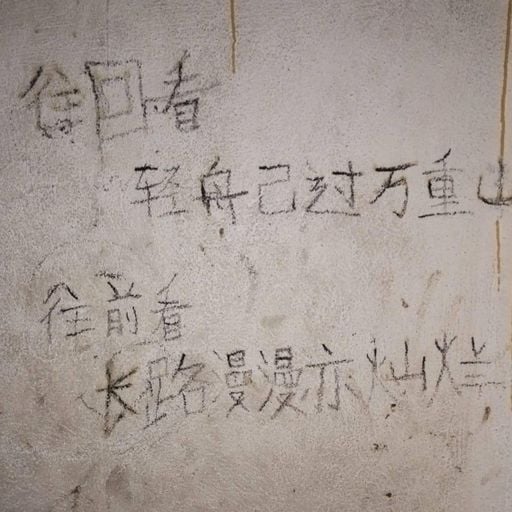 往回看
轻舟己过万重山
往前看
长路漫漫亦灿烂